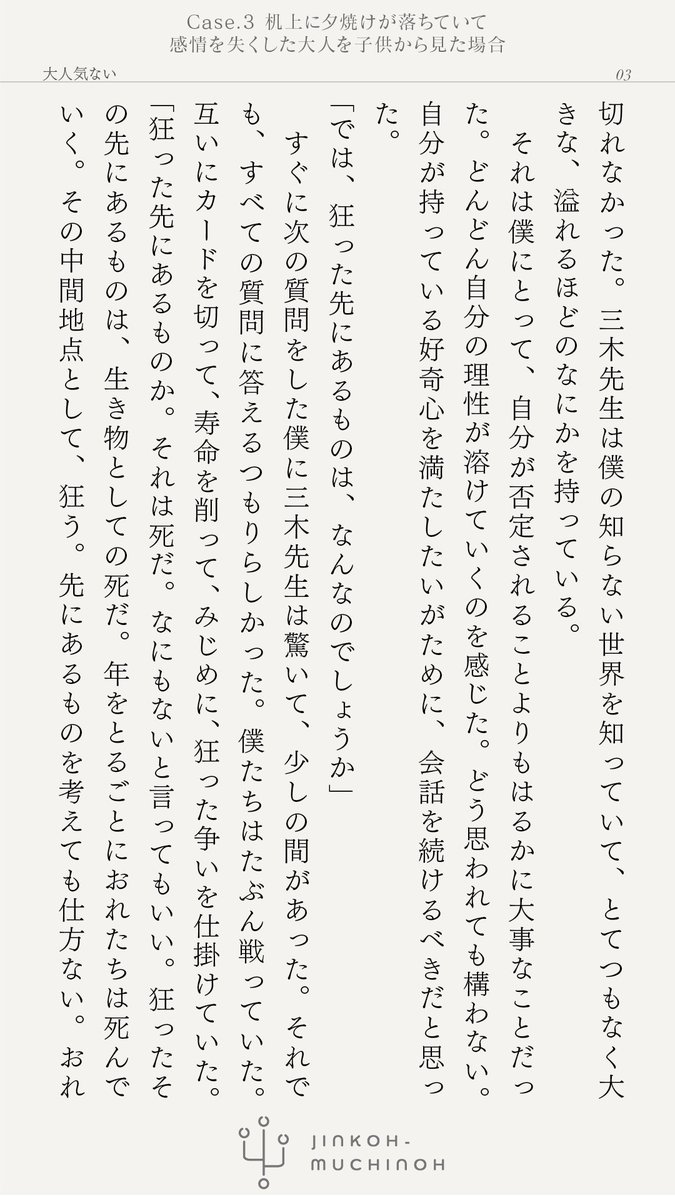 Case.3 机上に夕焼けが落ちていて
感情を失くした大人を子供から見た場合
大人気ない
03
切れなかった。三木先生は僕の知らない世界を知っていて、とてつもなく大
きな、溢れるほどのなにかを持っている。
それは僕にとって、自分が否定されることよりもはるかに大事なことだっ
た。どんどん自分の理性が溶けていくのを感じた。どう思われても構わない。
自分が持っている好奇心を満たしたいがために、会話を続けるべきだと思っ
た。
「では、狂った先にあるものは、なんなのでしょうか」
すぐに次の質問をした僕に三木先生は驚いて、少しの間があった。それで
も、すべての質問に答えるつもりらしかった。僕たちはたぶん戦っていた。
互いにカードを切って、寿命を削って、みじめに、狂った争いを仕掛けていた。
「狂った先にあるものか。それは死だ。なにもないと言ってもいい。狂ったそ
の先にあるものは、生き物としての死だ。年をとるごとにおれたちは死んで
いく。その中間地点として、狂う。先にあるものを考えても仕方ない。おれ
JINKOH-
MUCHINOH